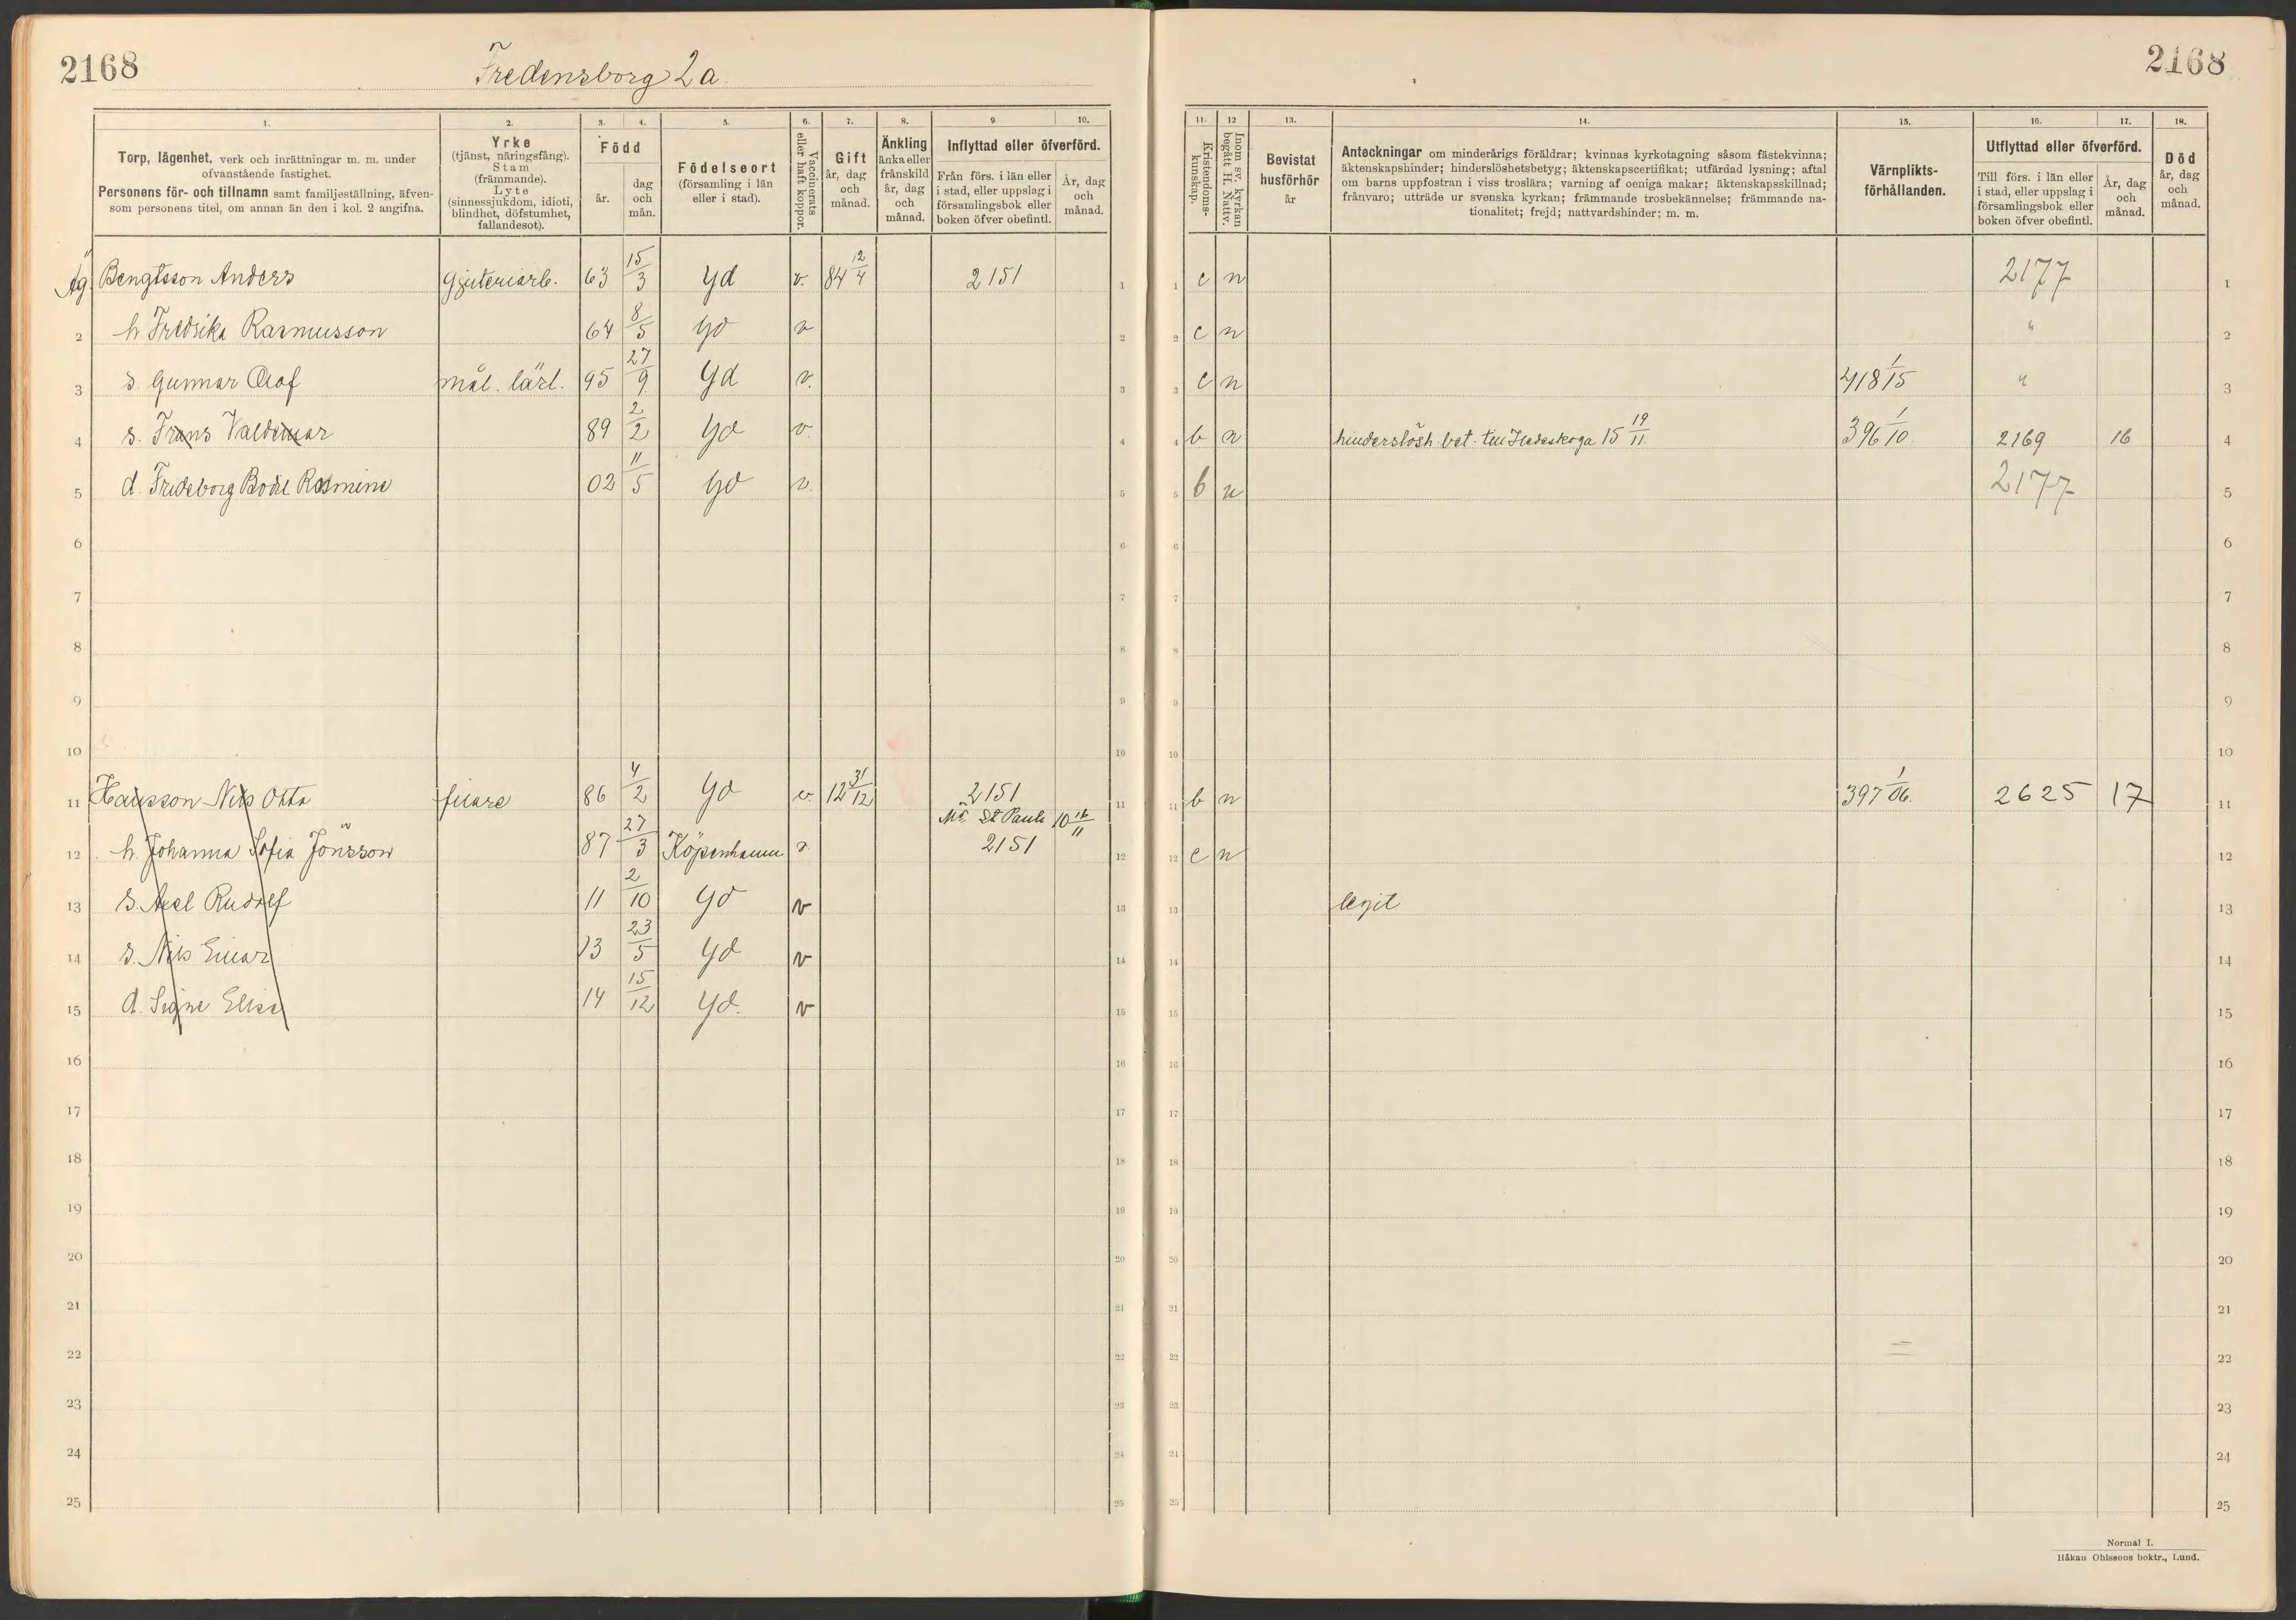 2168
Fredensborg 2a
1.
2.
3.
4.
5.
6.
7.
8.
9
10.
Torp, lägenhet, verk och inrättningar m. m. under
ofvanstående fastighet.
Personens för- och tillnamn samt familjeställning, äfven-
som personens titel, om annan än den i kol. 2 angifna.
Yrke
(tjänst, näringsfång).
Stam
(främmande).
Lyte
(sinnessjukdom, idioti,
blindhet, döfstumhet,
fallandesot).
Född
år.
dag
och
mån.
Födelseort
(församling i län
eller i stad).
Vaccinerats
eller haft koppor.
Gift
år, dag
och
månad.
Änkling
änka eller
frånskild
år, dag
och
månad.
Inflyttad eller öfverförd.
Från förs. i län eller
i stad, eller uppslag i
församlingsbok eller
boken öfver obefintl.
År, dag
och
månad.
Äg. Bengtsson Anders gjuteriarb. 63 15/3 Yd v. 84 12/4 2151 1
2 h. Fredrika Rasmusson 64 8/5 Yd v 2
3 s. Gunnar Olof mål. lärl. 95 27/9 Yd v. 3
4 s. Frans Valdemar 89 2/2 Yd v. 4
5 d. Frideborg Bodil Rasmine 02 11/5 Yd v. 5
6 6
7 7
8 8
9 9
10 10
11 Hansson Nils Otto filare 86 4/2 Yd v. 12 31/12 2151 11
Mö St Pauli 10 16/11
12 h. Johanna Sofia Jönsson 87 27/3 Köpenhamn v 2151 12
13 s. Axel Rudolf 11 2/10 Yd v 13
14 s. Nils Einar 13 23/5 Yd v 14
15 d. Signe Elisa 14 15/12 Yd. v 15
16 16
17 17
18 18
19 19
20 20
21 21
22 22
23 23
24 24
25 25
2168
11.
12
13.
14.
15.
16.
17.
18.
Kristendoms-
kunskap.
Inom sv. kyrkan
begått H. Nattv.
Bevistat
husförhör
år
Anteckningar om minderårigs föräldrar; kvinnas kyrkotagning såsom fästekvinna;
äktenskapshinder; hinderslöshetsbetyg; äktenskapscertifikat; utfärdad lysning; aftal
om barns uppfostran i viss troslära; varning af oeniga makar; äktenskapsskillnad;
frånvaro; utträde ur svenska kyrkan; främmande trosbekännelse; främmande na-
tionalitet; frejd; nattvardshinder; m. m.
Värnplikts-
förhållanden.
Utflyttad eller öfverförd.
Till förs. i län eller
i stad, eller uppslag i
församlingsbok eller
boken öfver obefintl.
År, dag
och
månad.
Död
år, dag
och
månad.
1 c n 2177 1
2 c n " 2
3 c n 418 1/15 " 3
4 b n hinderslösh. bet. till Hedeskoga 15 19/11. 396 1/10. 2169 16 4
5 b n 2177 5
6 6
7 7
8 8
9 9
10 10
11 b n 397 1/06. 2625 17 11
12 c n 12
13 legit 13
14 14
15 15
16 16
17 17
18 18
19 19
20 20
21 21
22 22
23 23
24 24
25 25
Normal I.
Håkan Ohlssons boktr., Lund.